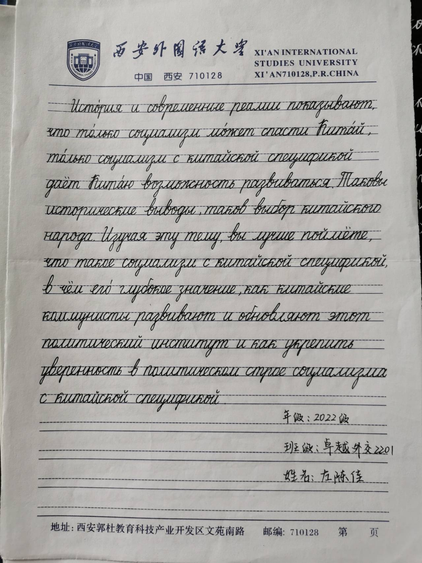 西安外国语大学
XI'AN INTERNATIONAL
STUDIES UNIVERSITY
中国 西安 710128
XI'AN710128,P.R.CHINA
История и современные реалии показывают,
что то́лько социализм мо́жет спасти Кита́й,
то́лько социализм с китайской спецификой
даёт Кита́ю возможность развиваться. Таковы
исторические выводы, таков выбор китайского
народа. Изучая эту тему, вы лучше поймёте,
что такое социализм с китайской спецификой,
в чём его́ глубокое значение, как китайские
коммунисты развивают и обновляют этот
политический институт и как укрепить
уверенность в политическом строе социализма
с китайской спецификой.
年级: 2022级
班级: 卓越外交2201
姓名: 左陈佳
地址: 西安郭杜教育科技产业开发区文苑南路 邮编: 710128 第 页